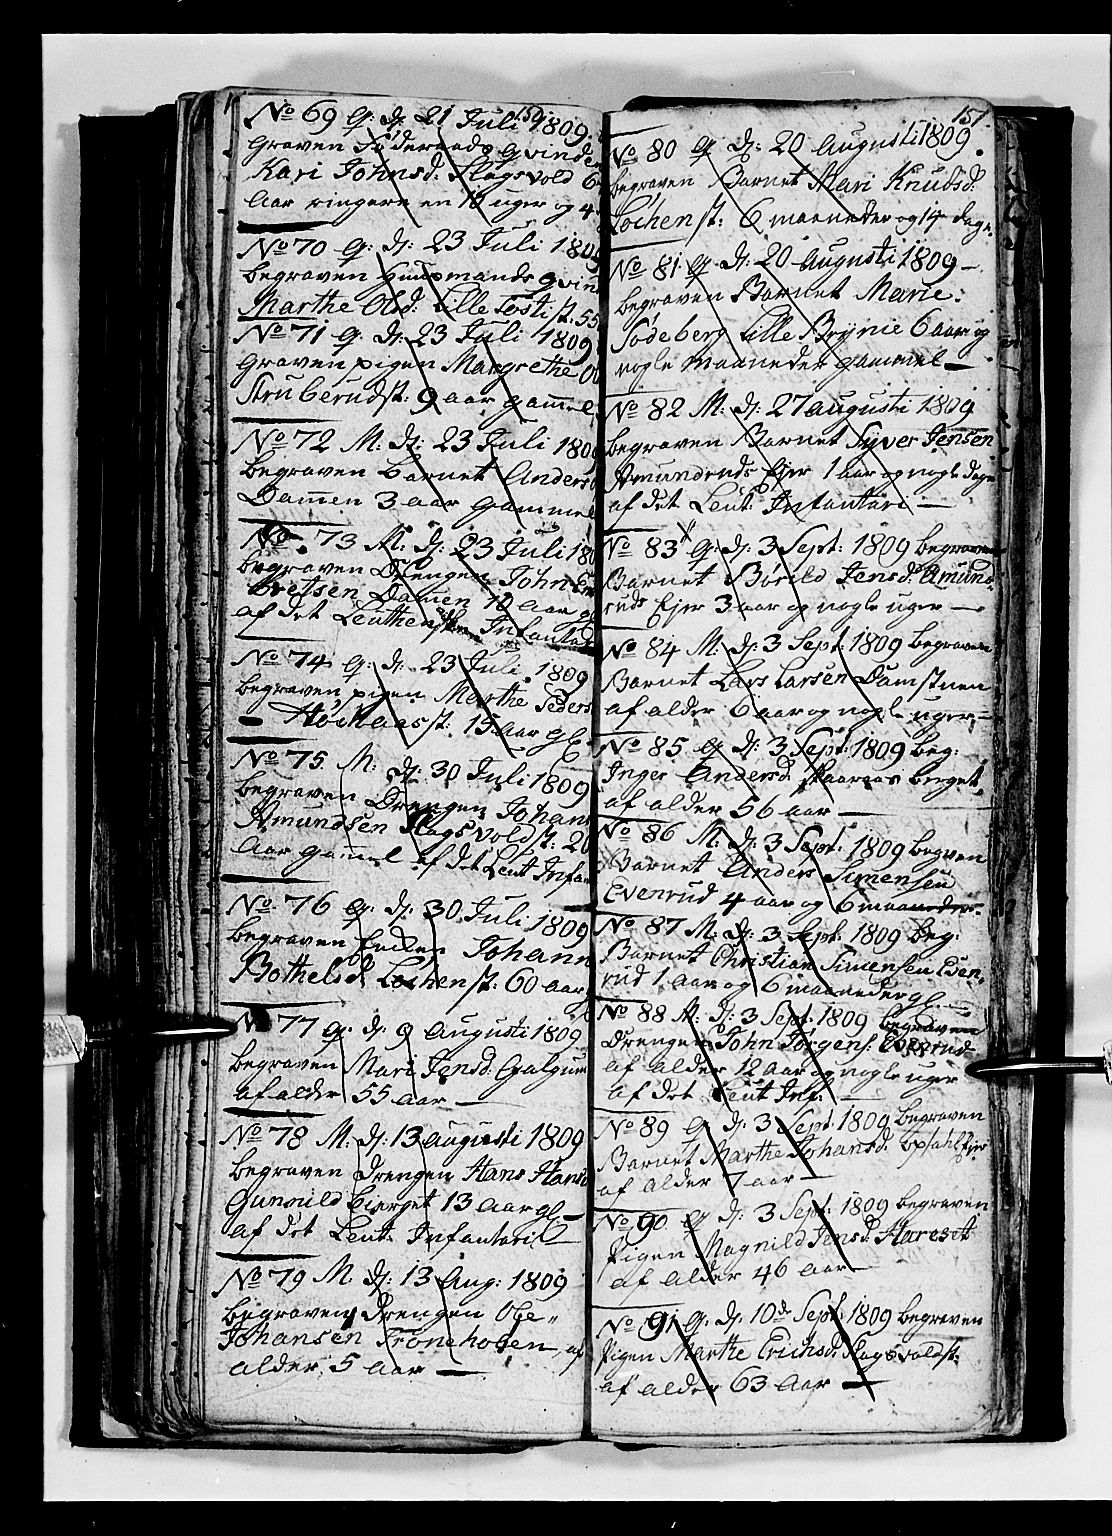 150
No 69 Q: d: 21 Juli 1809.
graven Föderaads qvinde
Kari Johnsd. Slagsvold 6
Aar ringere en 16 uger og 4
No 70 Q: d: 23 Juli 1809
begraven huusmands qvin
Marthe Olsd: Lille Tosti st. 55
No 71 Q. d: 23 Juli 1809
graven pigen Margrethe
Struberud st: 9 aar gam̅el
No 72 M: d: 23 Juli 1809
begraven barnet Anders
Dam̅en 3 aar gammel
No. 73 M: d: 23 Juli 180
begraven Drengen John
Dam̅en 10 aar
af det Infanteri
No 74 Q: d: 23 Juli. 1809
begraven pigen Marthe Peders
st: 15 aar gl
No 75 M: d: 30 Juli 1809
begraven Drengen Johan
Amundsen Slagsvold st: 20
Aar gam̅el af det Leut Infan
No. 76 Q: d: 30. Juli 1809
begraven Encken Johann
Bothelsd. Lochen st: 60 aar
No 77 Q: d: 9 Augusti 1809
begraven Mari Jensd. Galgum
af alder 55 aar —
No 78 M: d: 13 augusti 1809
begraven drengen Hans Hans
Gunnildbierget 13 aar gl —
af det Leut: Infanteri
No 79 M. d: 13 Aug: 1809
begraven Drengen Ole
Johansen Troneholen, af
alder, 5 aar —
151
No 80 Q d: 20 Augusti 1809.
begraven Barnet Mari Knudsd.
Lochen st: 6 maaneder og 14 dage.
No 81 Q. d: 20 Augusti 1809 —
begraven Barnet Marie:
Södeberg Lille Brynie 6 aar og
nogle Maaneder gammel —
No 82 M: d: 27 augusti 1809
begraven Barnet Syver Jensen
Amundruds Ejer 1 aar og nogle dage
af det Leut: Infanteri —
No 83 Q: d: 3 Sept: 1809 begraven
Barnet Börild Jensd. Amund
ruds Ejer 3 aar og nogle uger —
No 84 M: d: 3 Sept: 1809 begraven
Barnet Lars Larsen Damstuen
af alder 6 aar og nogle uger —
No 85 Q d: 3 Sept: 1809 beg:
Inger Andersd. berget
af alder 56 aar —
No 86 M. d: 3 Sept: 1809 begraven
Barnet Anders Simensen
Evenrud 4 aar og 6 maaneder.
No 87 M: d: 3 Sept. 1809 beg:
Barnet Christian Simensen Even-
rud 1 aar og 6 maaneder gl —
No 88 M: d: 3 Sept: 1809 begraven
drengen John Jörgens: Evenrud
af alder 12 aar og nogle uger
af det Leut Inf: —
No 89 Q d: 3 Sept. 1809 begraven
Barnet Marthe Johansd.
af alder 7 aar —
No 90. Q d: 3 Sept. 1809 begraven
Pigen Magnild Jensd. Hareset
af alder 46 aar —
No 91 Q. d: 10de Sept. 1809 begraven
Pigen Marthe Erichsd. Slagsvold st:
af alder 63 Aar —